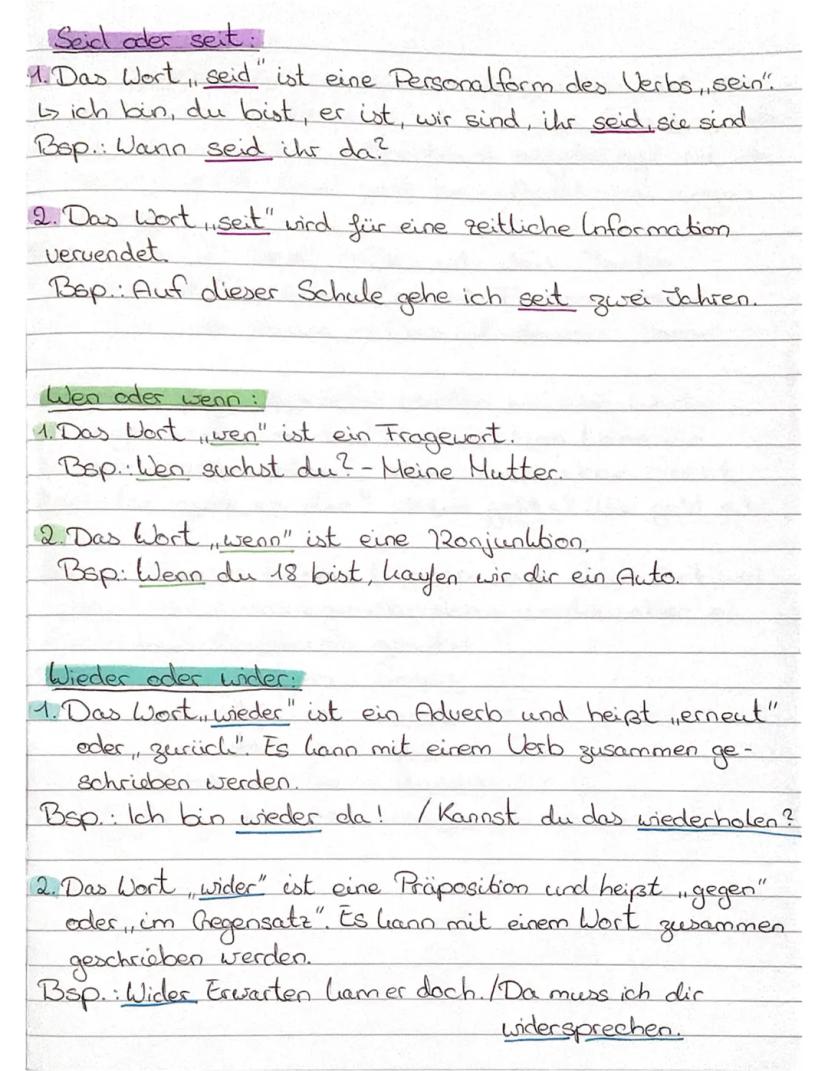 Seid oder seit:
1. Das Wort „seid" ist eine Personalform des Verbs „sein".
↳ ich bin, du bist, er ist, wir sind, ihr seid, sie sind
Bsp.: Wann seid ihr da?
2. Das Wort „seit" wird für eine zeitliche Information
verwendet.
Bsp.: Auf dieser Schule gehe ich seit zwei Jahren.
Wen oder wenn:
1. Das Wort „wen" ist ein Fragewort.
Bsp.: Wen suchst du? - Meine Mutter.
2. Das Wort „wenn" ist eine Konjunktion.
Bsp: Wenn du 18 bist, kaufen wir dir ein Auto.
Wieder oder wider:
1. Das Wort „wieder" ist ein Adverb und heißt „erneut"
oder „zurück". Es kann mit einem Verb zusammen ge-
schrieben werden.
Bsp.: Ich bin wieder da! / Kannst du das wiederholen?
2. Das Wort „wider" ist eine Präposition und heißt „gegen"
oder „im Gegensatz". Es kann mit einem Wort zusammen
geschrieben werden.
Bsp.: Wider Erwarten kam er doch. / Da muss ich dir
widersprechen.